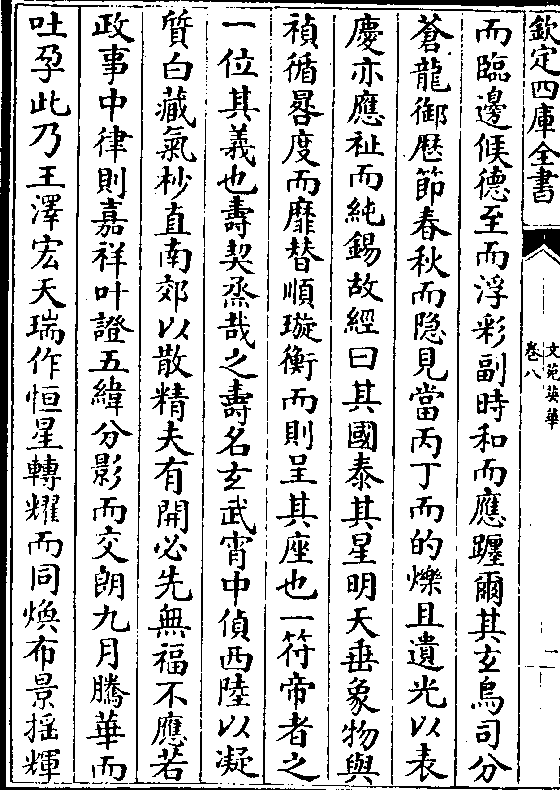 欽定四庫全書
文苑英華
卷八
一
而臨邊候德至而浮彩副時和而應躔爾其玄鳥司分
蒼龍御厯節春秋而隐見當丙丁而的爍且遺光以表
慶亦應祉而純錫故經曰其國泰其星明天垂象物與
禎循晷度而靡替順璇衡而則呈其座也一符帝者之
一位其義也壽契烝哉之壽名玄武宵中偵西陸以凝
質白藏氣杪直南郊以散精夫有開必先無福不應若
政事中律則嘉祥叶證五緯分影而交朗九月騰華而
吐孕此乃王澤宏天瑞作恒星轉耀而同煥布景揺輝